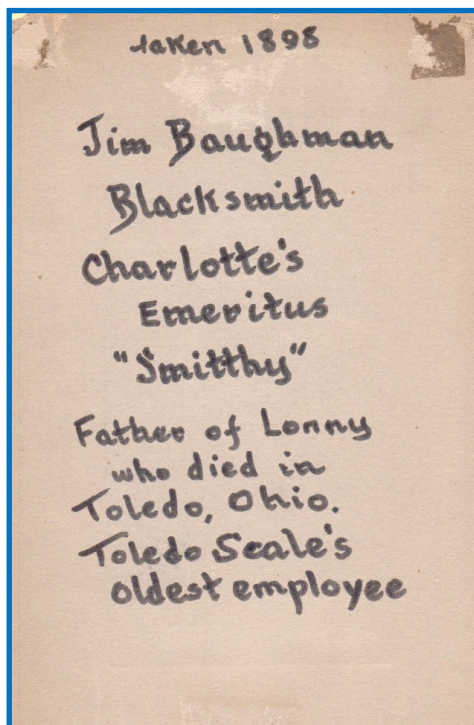 taken 1898
Jim Baughman
Blacksmith
Charlotte's
Emeritus
"Smitthy"
Father of Lonny
who died in
Toledo, Ohio.
Toledo Scale's
oldest employee